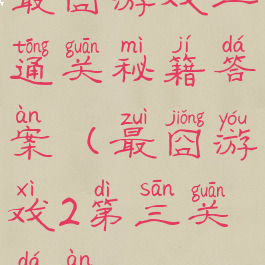 最囧游戏
tōng guān mì jí dá
通关秘籍答
àn zuì jiǒng yóu
案(最囧游
xì dì sān guān
戏2第三关
dá àn